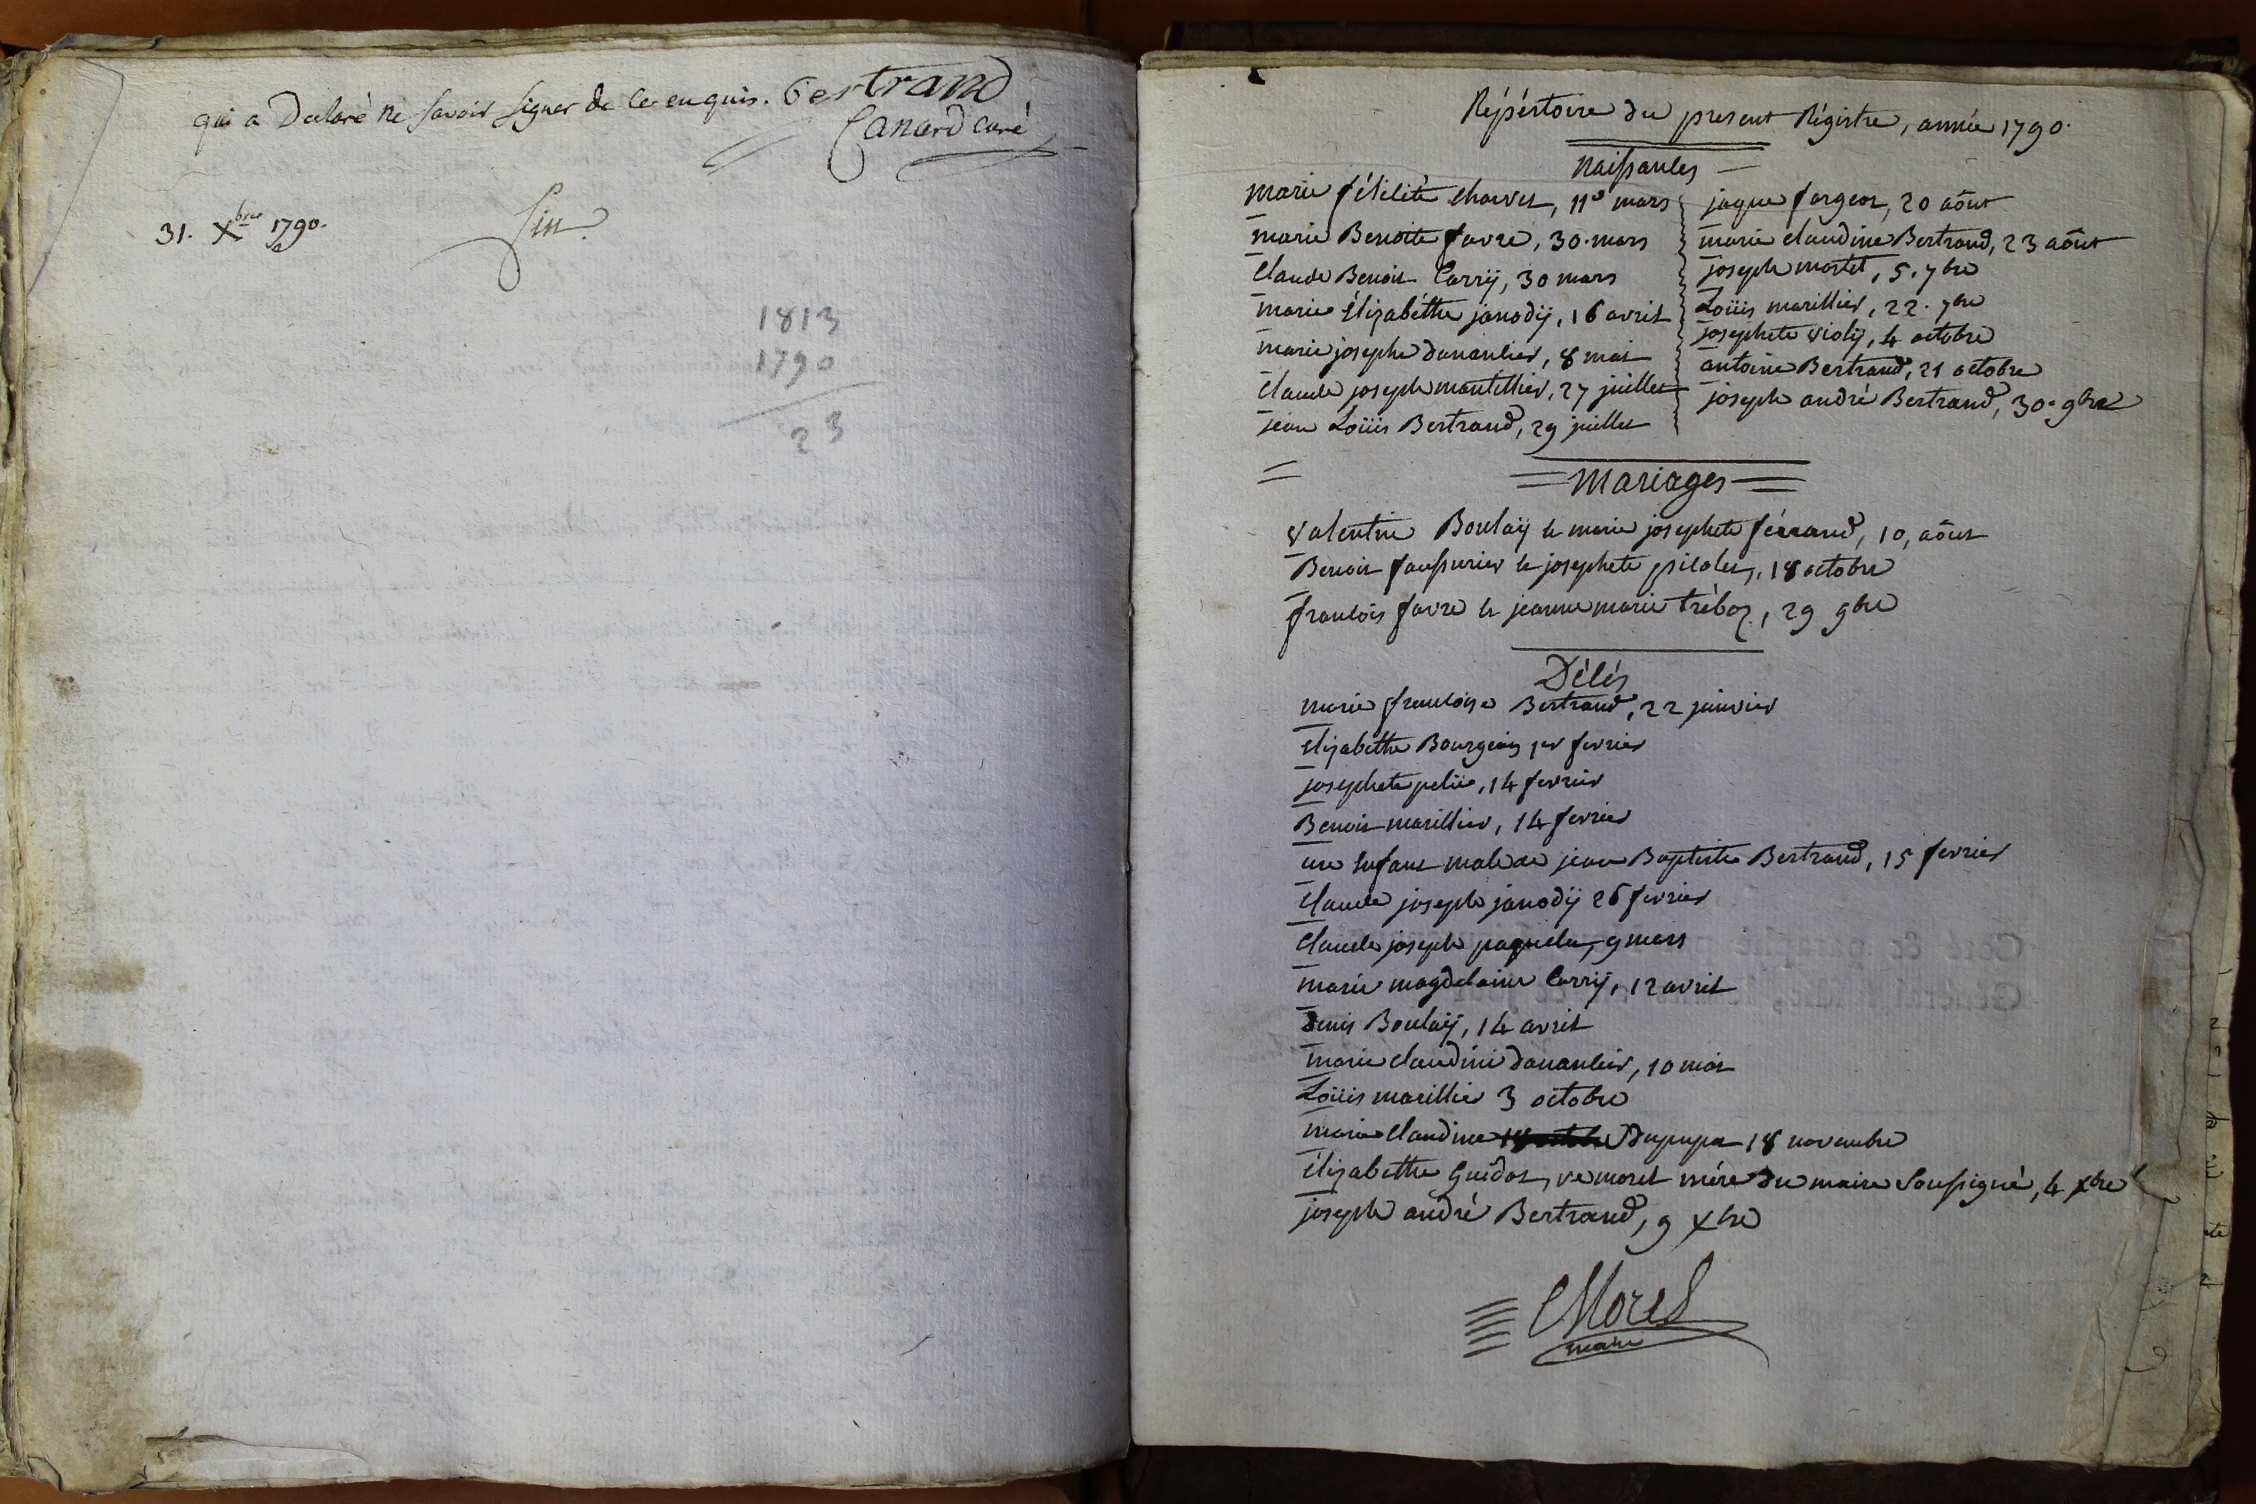 qui a Declaré ne savoir signer de ce enquis. Bertrand
Canard curé
31. Xbre 1790.
fin.
1813
1790
23
Répértoire du present Régistre, année 1790.
Naissances
marie félicité Chavet, 11e mars
marie Benoite favre, 30. mars
Claude Benoit Carrÿ, 30 mars
marie Élizabéthe janodÿ, 16 avril
marie josephe dananchier, 8 mai
Claude joseph mantillier, 27 juillet
jean Loüis Bertrand, 29 juillet
jaque forgeot, 20 aôut
marie claudine Bertrand, 23 aôut
joseph mortel, 5. 7bre
Loüis marillier, 22. 7bre
josephete violÿ, 4 octobre
antoine Bertrand, 21 octobre
joseph andré Bertrand, 30. 9bre
Mariages
valentin Boulaÿ & marie josephete férrand, 10, aôut
Benoit faussurier & josephete picolet, 18 octobre
francois favre & jeanne marie tréboz, 29 9bre
Décés
marie francoise Bertrand, 22 janvier
Elizabethe Bourgeois 1er fevrier
josephete pelii, 14 fevrier
Benoit marillier, 14 fevrier
un enfant male de jean Baptiste Bertrand, 15 fevrier
Claude joseph janodÿ 26 fevrier
Claude joseph paquelet, 9 mars
marie magdelaine Carrÿ, 12 avril
Denis Boulaÿ, 14 avril
marie claudine dananchier, 10 mai
Loüis marillier 3 octobre
marie Claudine Dupupet 18 novembre
Élizabethe Guidot, ve morel mére du maire soussigné, 4 xbre
joseph andré Bertrand, 9 xbre
Morel
maire